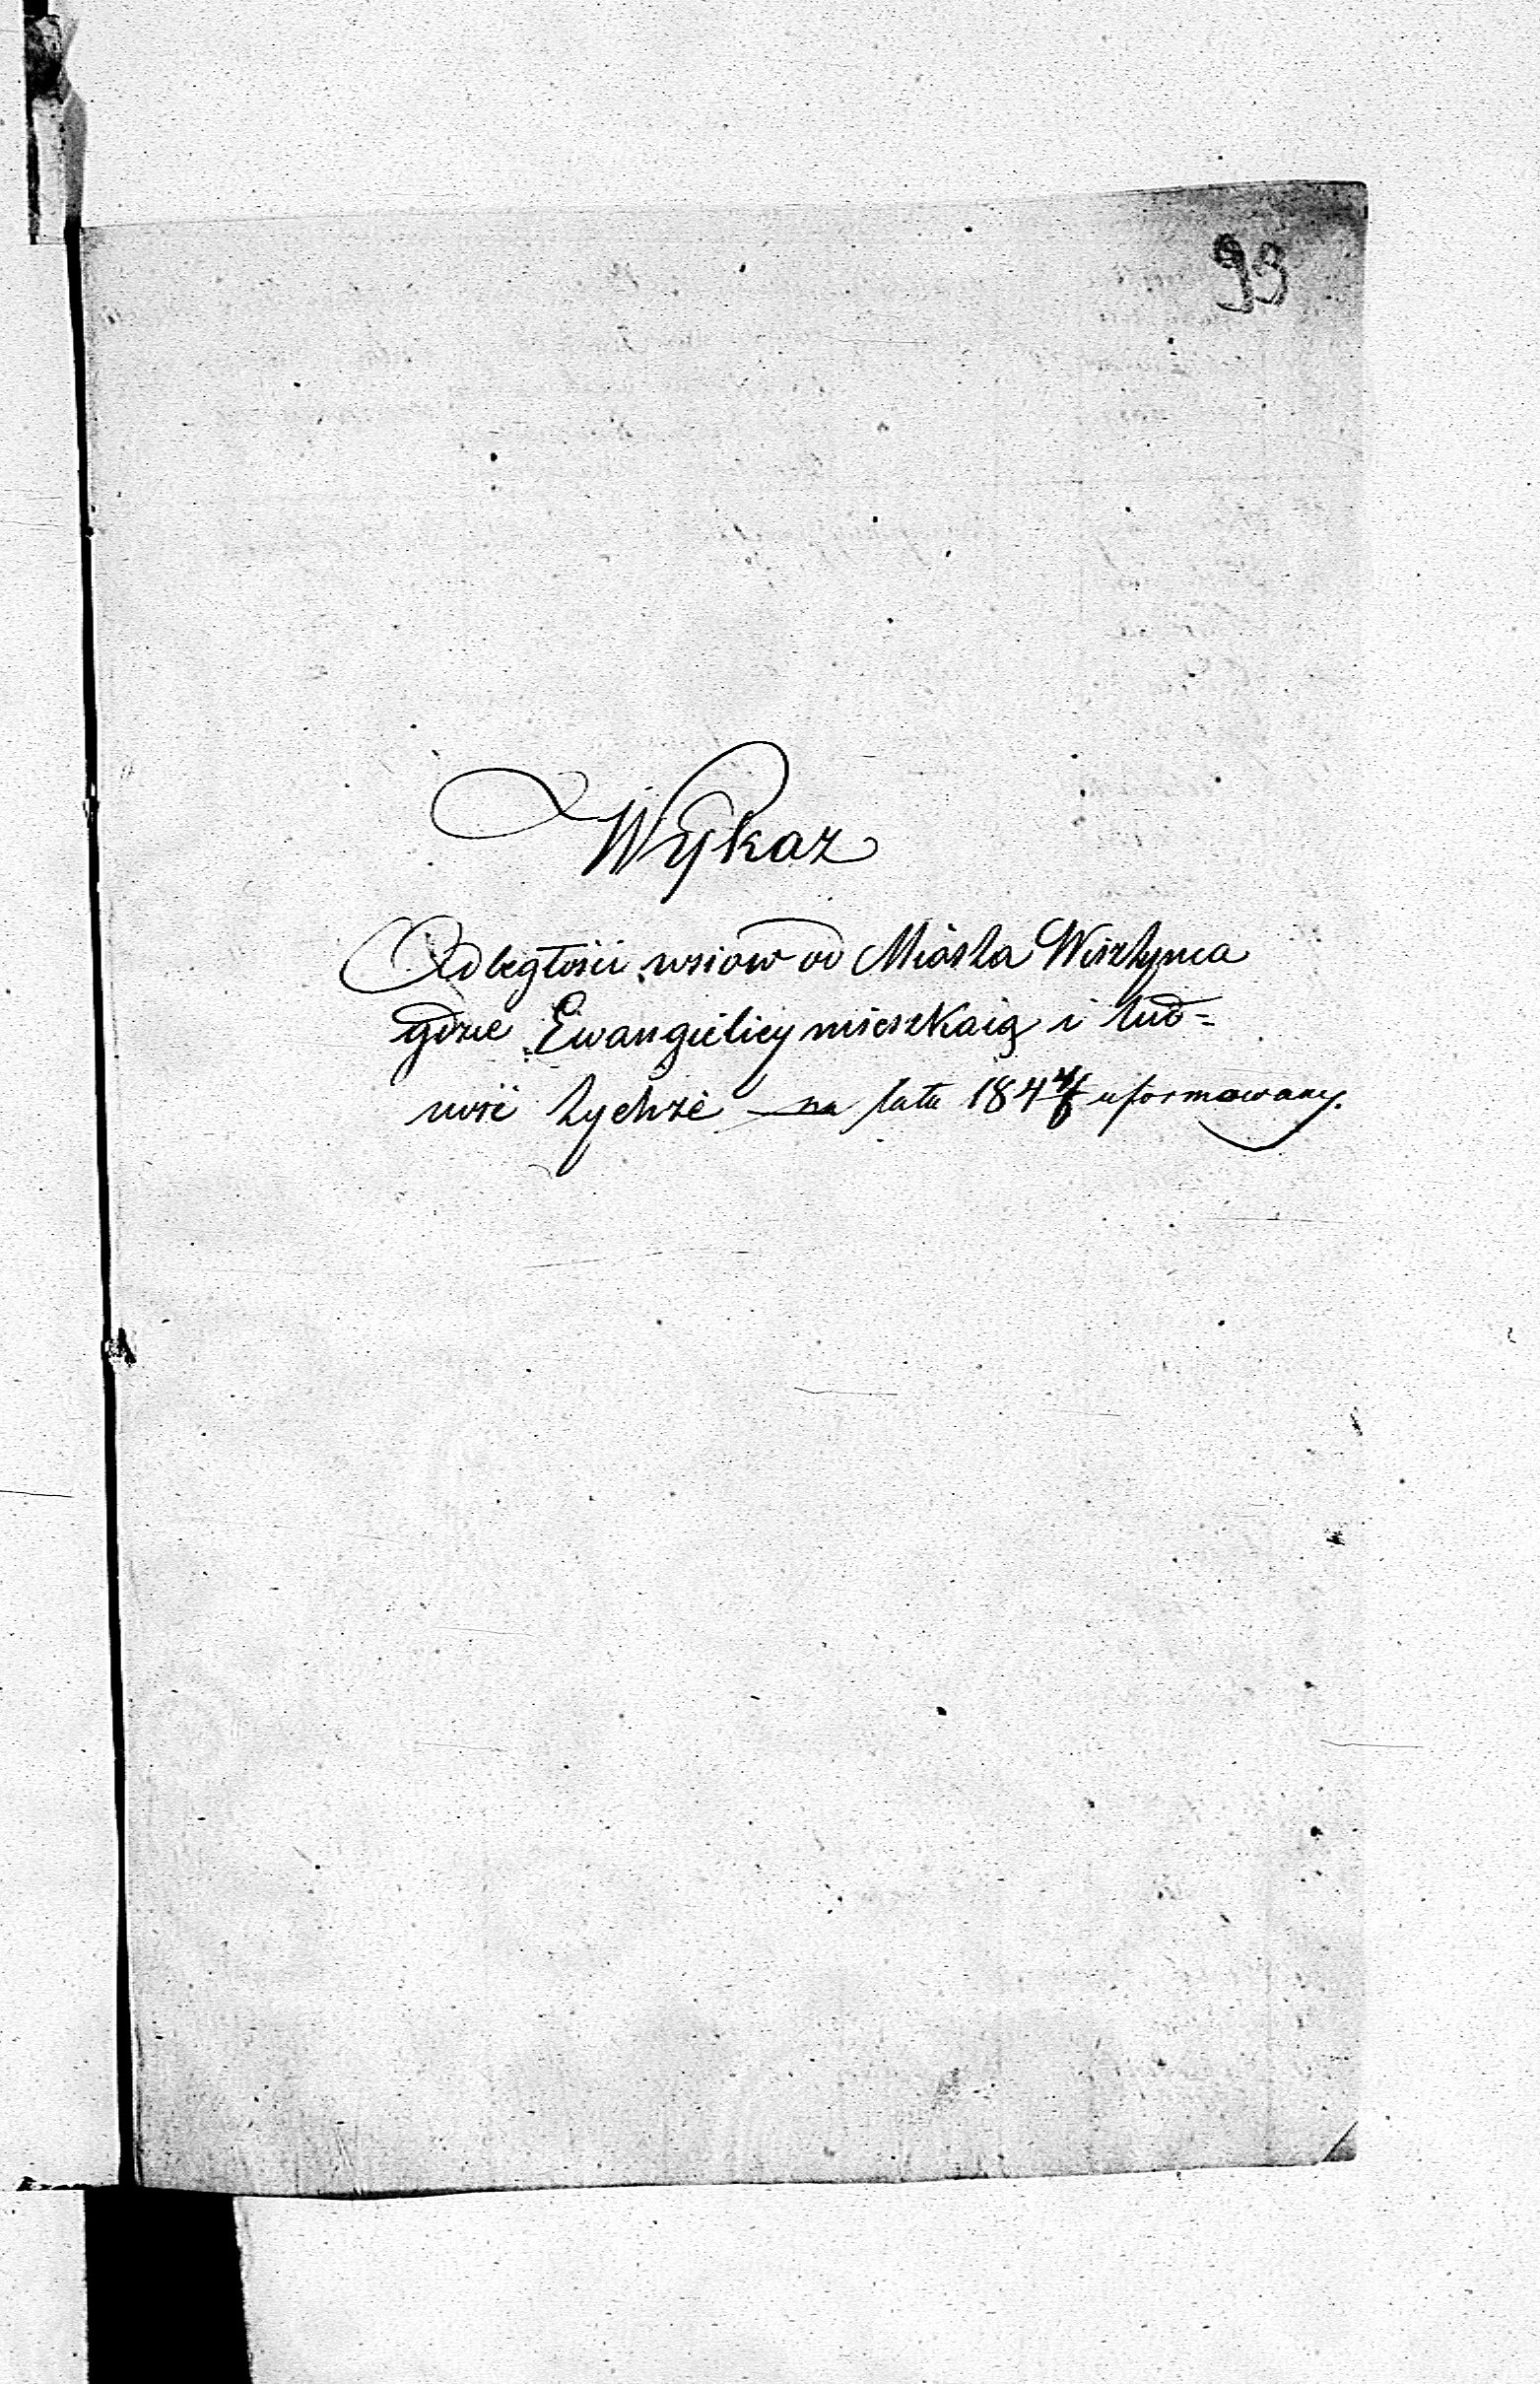 93
Wykaz
Odległości wsiow od Miasta Wisztynca
gdzie Ewangielicy mieszkaią i lud=
ność tychże na lata 184 4/6 uformowany.